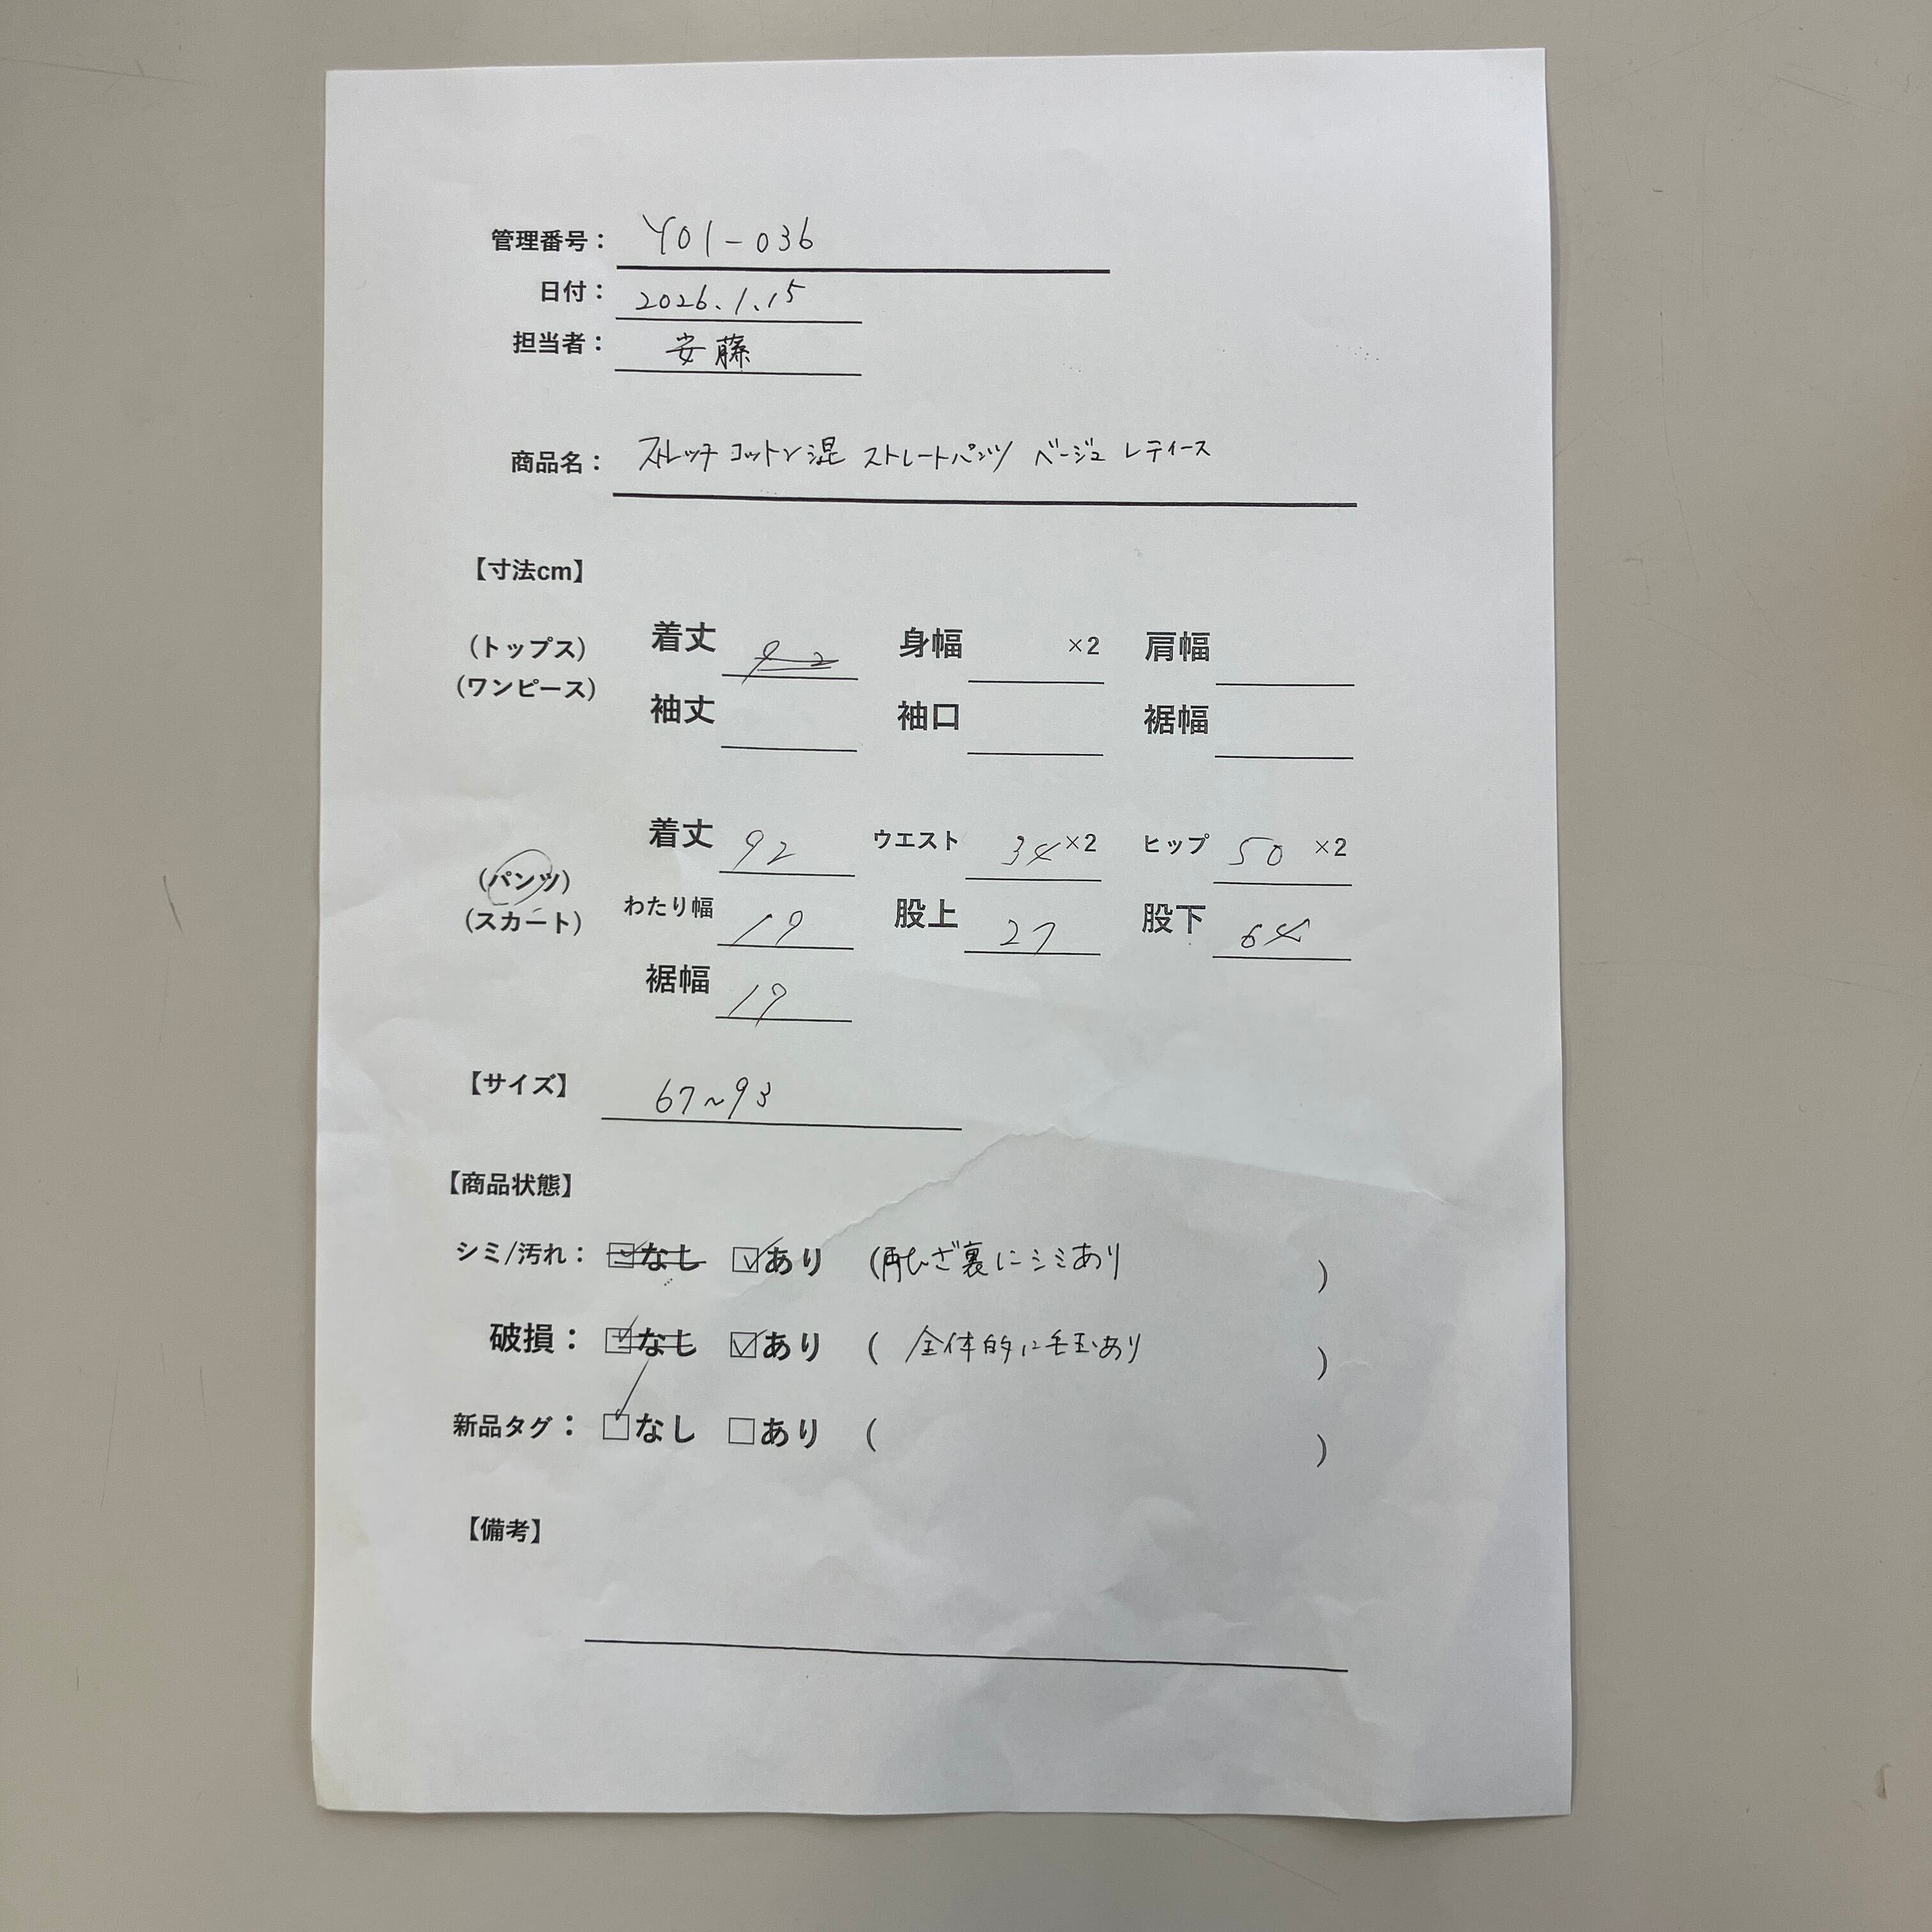 管理番号： Y01-036
日付： 2026.1.15
担当者： 安藤
商品名： ストレッチ コットン混 ストレートパンツ ベージュ レディース
【寸法cm】
（トップス）
（ワンピース）
着丈 92 身幅 ×2 肩幅
袖丈 袖口 裾幅
（パンツ）
（スカート）
着丈 92 ウエスト 34 ×2 ヒップ 50 ×2
わたり幅 19 股上 27 股下 64
裾幅 19
【サイズ】 67~93
【商品状態】
シミ/汚れ： ☑なし ☑あり （両ひざ裏にシミあり ）
破損： ☑なし ☑あり （ 全体的に毛玉あり ）
新品タグ： ☑なし □あり （ ）
【備考】